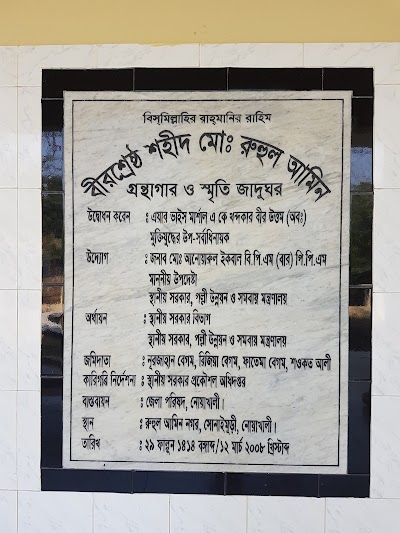 বিস্‌মিল্লাহির রাহ্‌মানির রাহিম
বীরশ্রেষ্ঠ শহীদ মোঃ রুহুল আমিন
গ্রন্থাগার ও স্মৃতি জাদুঘর
উদ্বোধন করেন : এয়ার ভাইস মার্শাল এ কে খন্দকার বীর উত্তম (অবঃ)
মুক্তিযুদ্ধের উপ-সর্বাধিনায়ক
উদ্যোগ : জনাব মোঃ আনোয়ারুল ইকবাল বি.পি.এম (বার) পি.পি.এম
মাননীয় উপদেষ্টা
স্থানীয় সরকার, পল্লী উন্নয়ন ও সমবায় মন্ত্রণালয়
অর্থায়ন : স্থানীয় সরকার বিভাগ
স্থানীয় সরকার, পল্লী উন্নয়ন ও সমবায় মন্ত্রণালয়
জমিদাতা : নূরজাহান বেগম, রিজিয়া বেগম, ফাতেমা বেগম, শওকত আলী
কারিগরি নির্দেশনা : স্থানীয় সরকার প্রকৌশল অধিদপ্তর
বাস্তবায়ন : জেলা পরিষদ, নোয়াখালী।
স্থান : রুহুল আমিন নগর, সোনাইমুড়ী, নোয়াখালী।
তারিখ : ২৯ ফাল্গুন ১৪১৪ বঙ্গাব্দ/১২ মার্চ ২০০৮ খ্রিস্টাব্দ